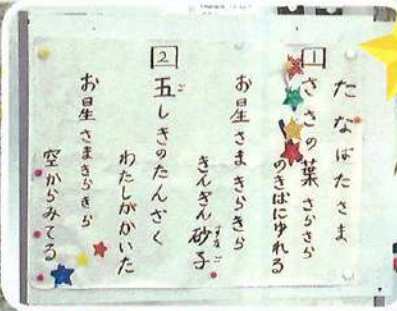 たなばたさま
1 ささの葉さらさら
のきばにゆれる
お星さまきらきら
きんぎん砂子
すなご
2 五しきのたんざく
ご
わたしがかいた
お星さまきらきら
空からみてる